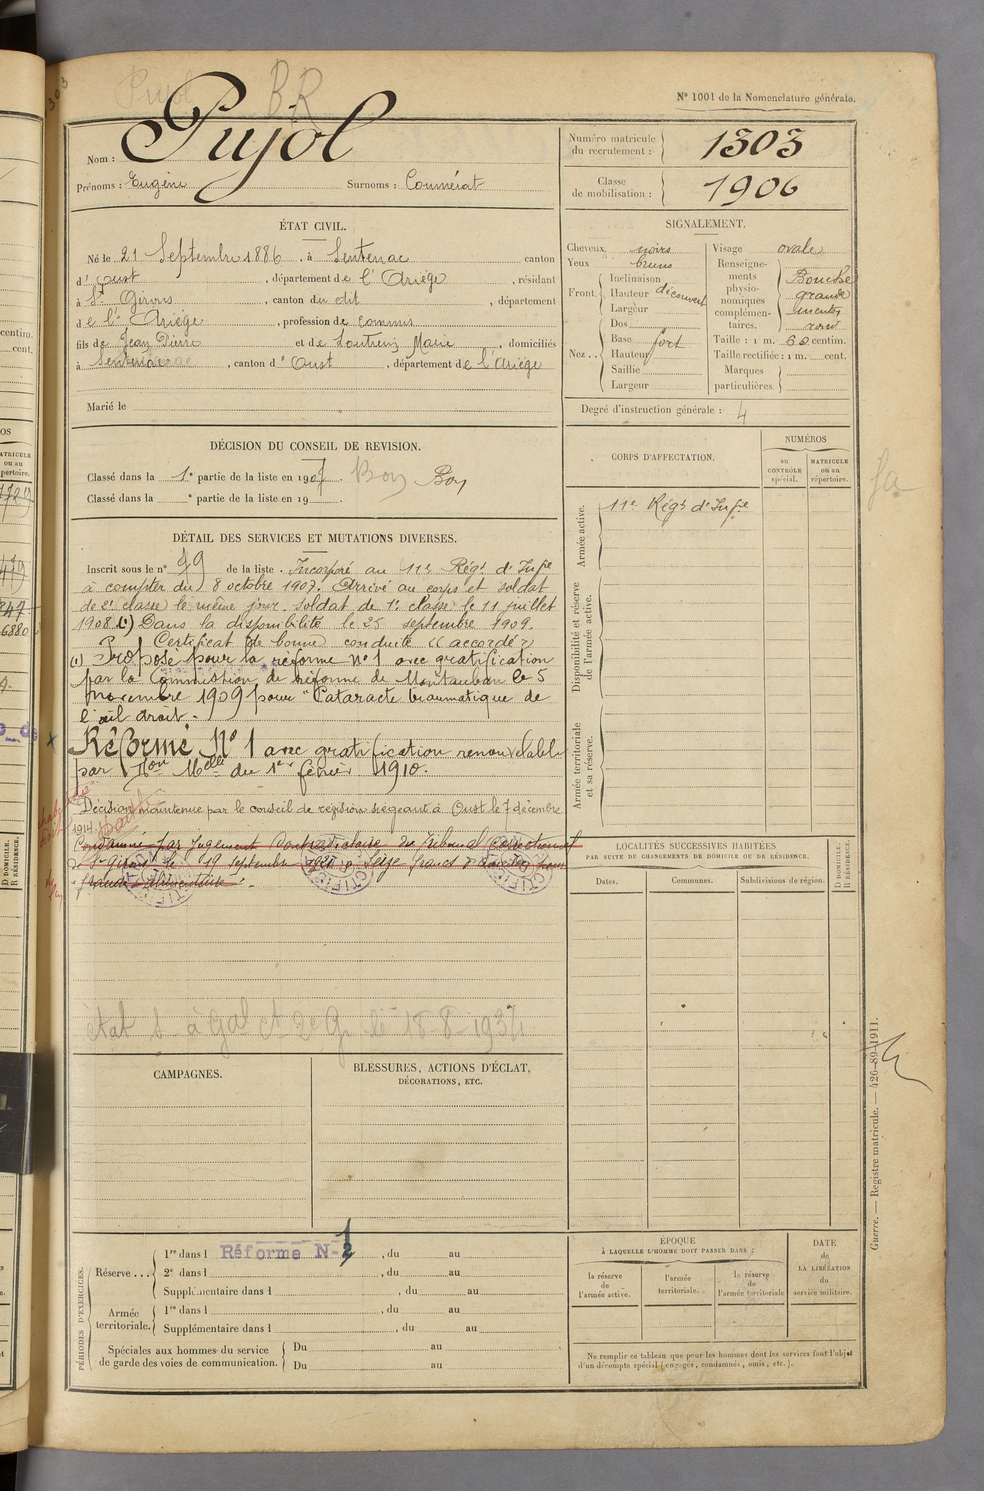 303
Pujol
BR
N° 1001 de la Nomenclature générale.
Nom : Pujol
Prénoms : Eugène Surnoms :
Numéro matricule du recrutement : 1303
Classe de mobilisation : 1906
ÉTAT CIVIL.
Né le 21 Septembre 1886, à Sentenac canton
d'Oust, département de l'Ariège, résidant
à St Girons, canton du dit, département
de l'Ariège, profession de commis
fils de Jean Pierre et de Marie, domiciliés
à Sentenac, canton d'Oust, département de l'Ariège
Marié le
SIGNALEMENT.
Cheveux noirs
Yeux bruns
Front. Inclinaison
Hauteur découvert
Largeur
Nez.. Dos
Base fort
Hauteur
Saillie
Largeur
Visage ovale
Renseignements physionomiques complémentaires. Bouche grande menton rond
Taille : 1 m. 62 centim.
Taille rectifiée : 1 m. cent.
Marques particulières.
Degré d'instruction générale : 4
DÉCISION DU CONSEIL DE REVISION.
Classé dans la 1e partie de la liste en 1907 Bon Bon
Classé dans la e partie de la liste en 19
CORPS D'AFFECTATION.
NUMÉROS
au CONTRÔLE spécial.
MATRICULE ou au répertoire.
Armée active.
11e Régt d'Infie
Disponibilité et réserve de l'armée active.
Armée territoriale et sa réserve.
DÉTAIL DES SERVICES ET MUTATIONS DIVERSES.
Inscrit sous le n° 79 de la liste. Incorporé au 11e Régt d'Infie
à compter du 8 octobre 1907. Arrivé au corps et soldat
de 2e classe le même jour. Soldat de 1e classe le 11 juillet
1908. (1) Dans la disponibilité le 25 septembre 1909.
Certificat de bonne conduite "accordé"
(1) Proposé pour la réforme N°1 avec gratification
par la Commission de réforme de Montauban le 5
novembre 1909 pour "Cataracte traumatique de
l'œil droit.
Réformé N°1 avec gratification renouvelable
par Don Melle du 1er février 1910.
Décision maintenue par le conseil de révision siégeant à Oust le 7 décembre
1914.
Condamné par Jugement Contradictoire du Tribunal Correctionnel
de St Girons le 19 septembre à Seize francs d'amende pour
fraude alimentaire.
LOCALITÉS SUCCESSIVES HABITÉES
PAR SUITE DE CHANGEMENTS DE DOMICILE OU DE RÉSIDENCE.
Dates.
Communes.
Subdivisions de région.
D DOMICILE. R RÉSIDENCE.
CAMPAGNES.
BLESSURES, ACTIONS D'ÉCLAT,
DÉCORATIONS, ETC.
PÉRIODES D'EXERCICES.
Réserve... 1re dans l Réforme N° , du au
2e dans l , du au
Supplémentaire dans l , du au
Armée territoriale. 1re dans l , du au
Supplémentaire dans l , du au
Spéciales aux hommes du service
de garde des voies de communication. Du au
Du au
ÉPOQUE
À LAQUELLE L'HOMME DOIT PASSER DANS :
la réserve de l'armée active.
l'armée territoriale.
la réserve de l'armée territoriale
DATE de LA LIBÉRATION du service militaire.
Ne remplir ce tableau que pour les hommes dont les services font l'objet
d'un décompte spécial (engagés, condamnés, omis, etc.).
Guerre. — Registre matricule. — 426-89-1911.